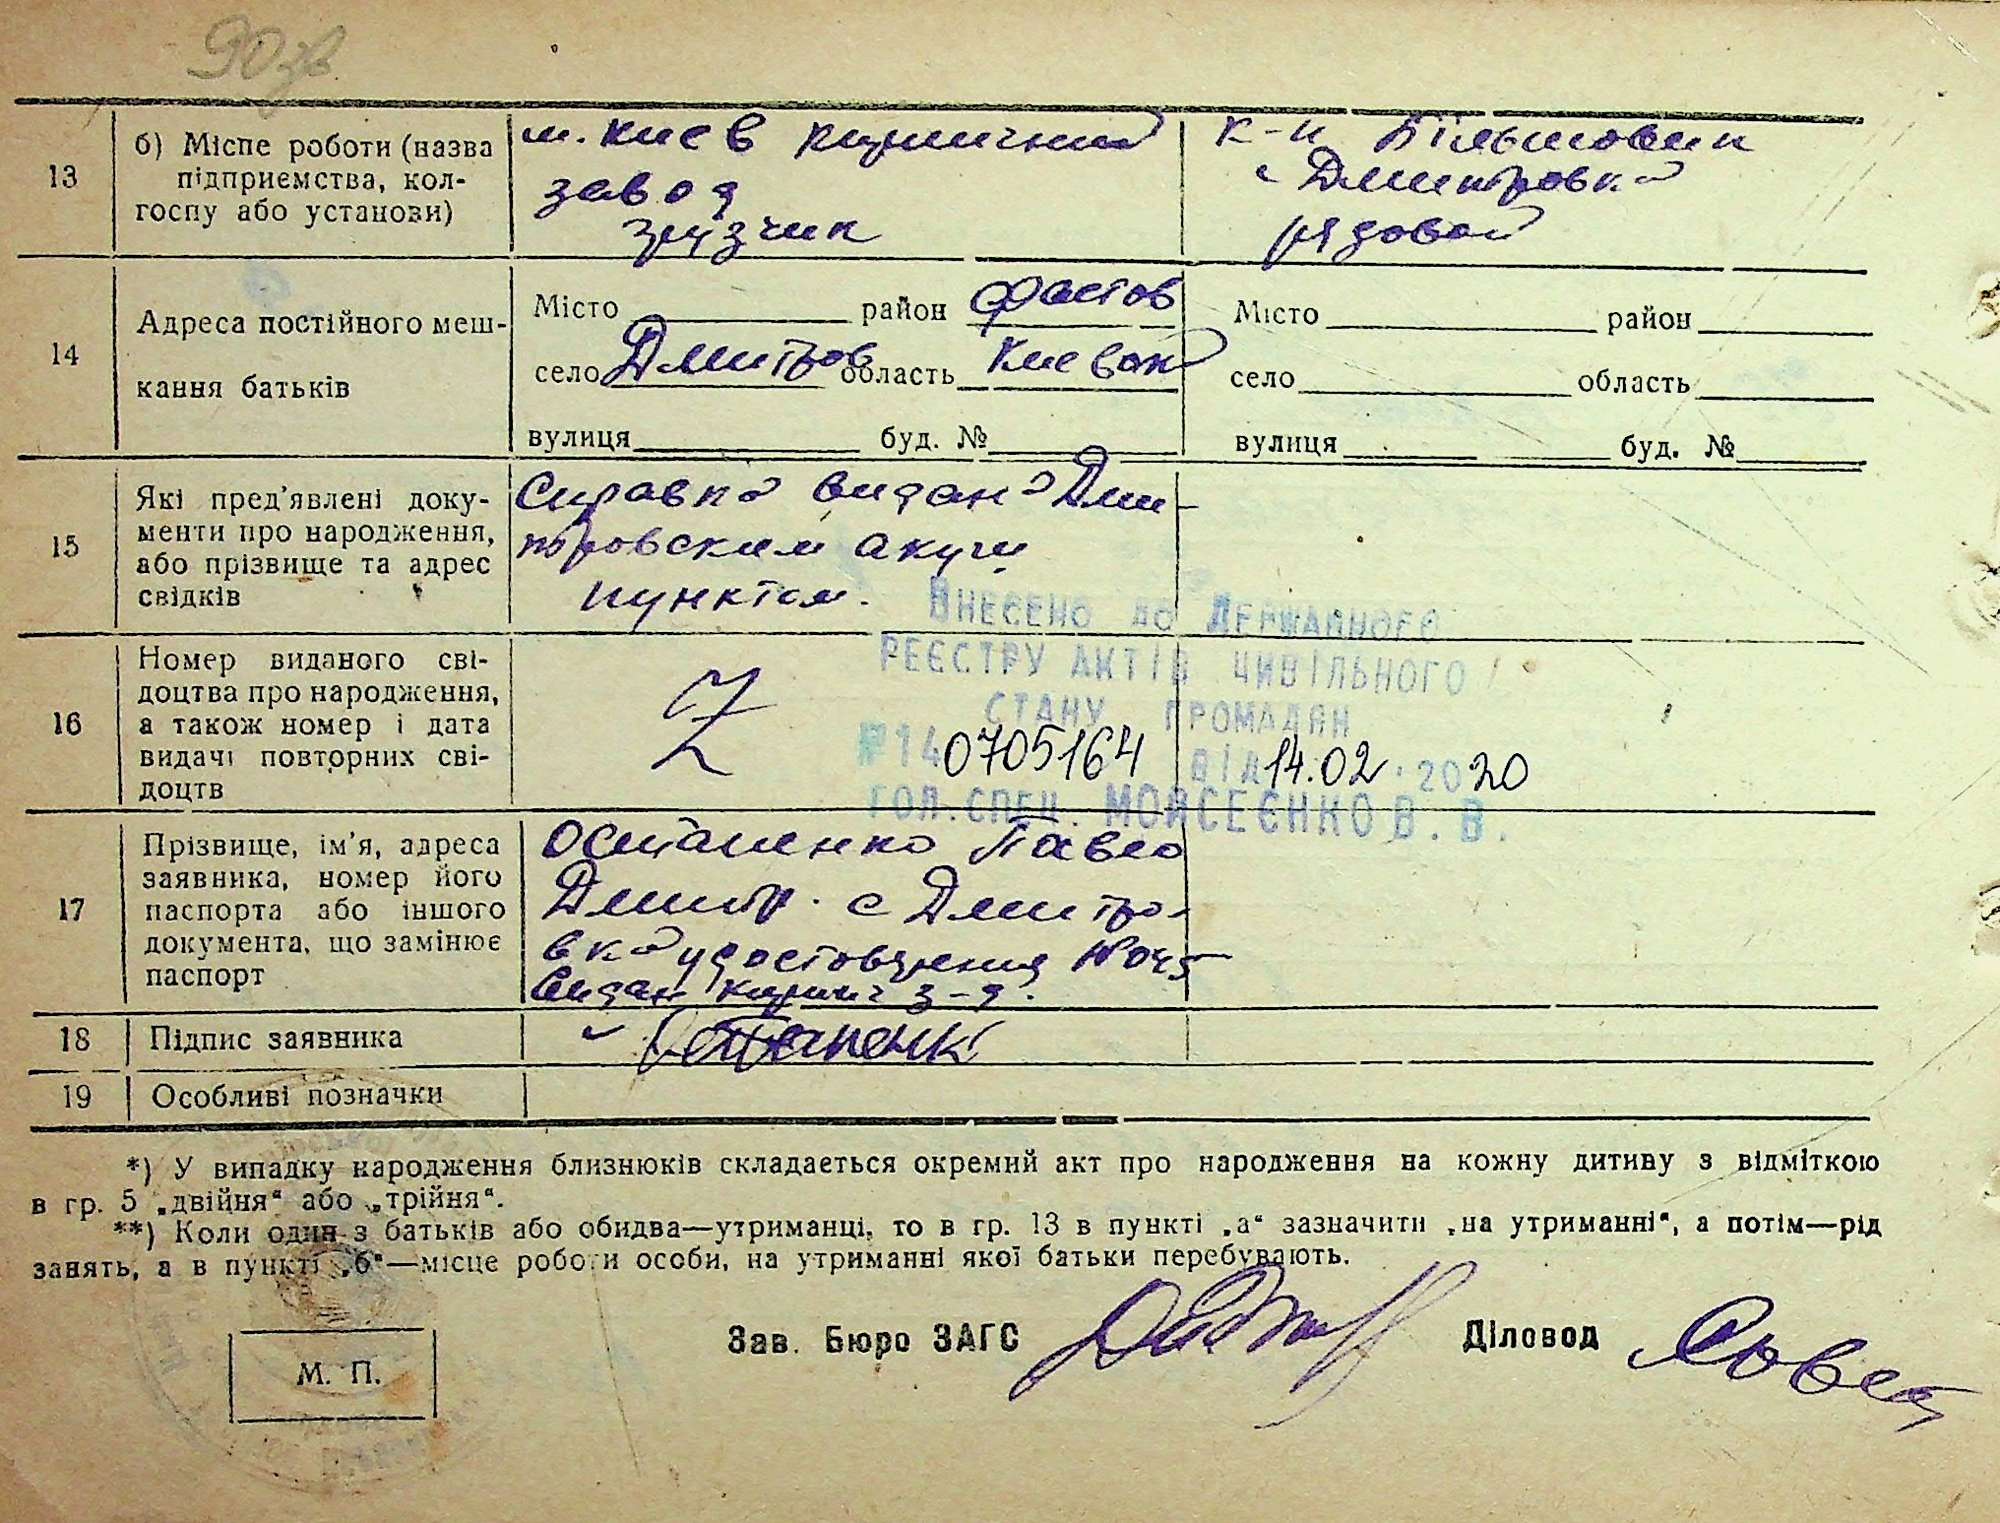 90зв
13
б) Місце роботи (назва
підприємства, кол-
госпу або установи)
м. Києв кирпичний
завод
грузчик
к-п Більшовик
с Дмитровка
рядовой
14
Адреса постійного меш-
кання батьків
Місто район Фастов
село Дмитров область Киевск
вулиця буд. №
Місто район
село область
вулиця буд. №
15
Які пред'явлені доку-
менти про народження,
або прізвище та адрес
свідків
Справка видана Дми-
тровским акуш
пунктом.
16
Номер виданого сві-
доцтва про народження,
а також номер і дата
видачі повторних сві-
доцтв
Внесено до Державного
реєстру актів цивільного
стану громадян
№ 140705164 від 14.02.2020
гол. спец. Мойсеєнко В. В.
17
Прізвище, ім'я, адреса
заявника, номер його
паспорта або іншого
документа, що замінює
паспорт
Остапенко Павло
Дмитр. с Дмитро-
вка удостоврения №045
видан кирпич з-д.
18
Підпис заявника
Остапенк
19
Особливі позначки
*) У випадку народження близнюків складається окремий акт про народження на кожну дитину з відміткою
в гр. 5 „двійня“ або „трійня“.
**) Коли один з батьків або обидва—утриманці, то в гр. 13 в пункті „а“ зазначити „на утриманні“, а потім—рід
занять, а в пункті „б“—місце роботи особи, на утриманні якої батьки перебувають.
Зав. Бюро ЗАГС
Діловод
М. П.